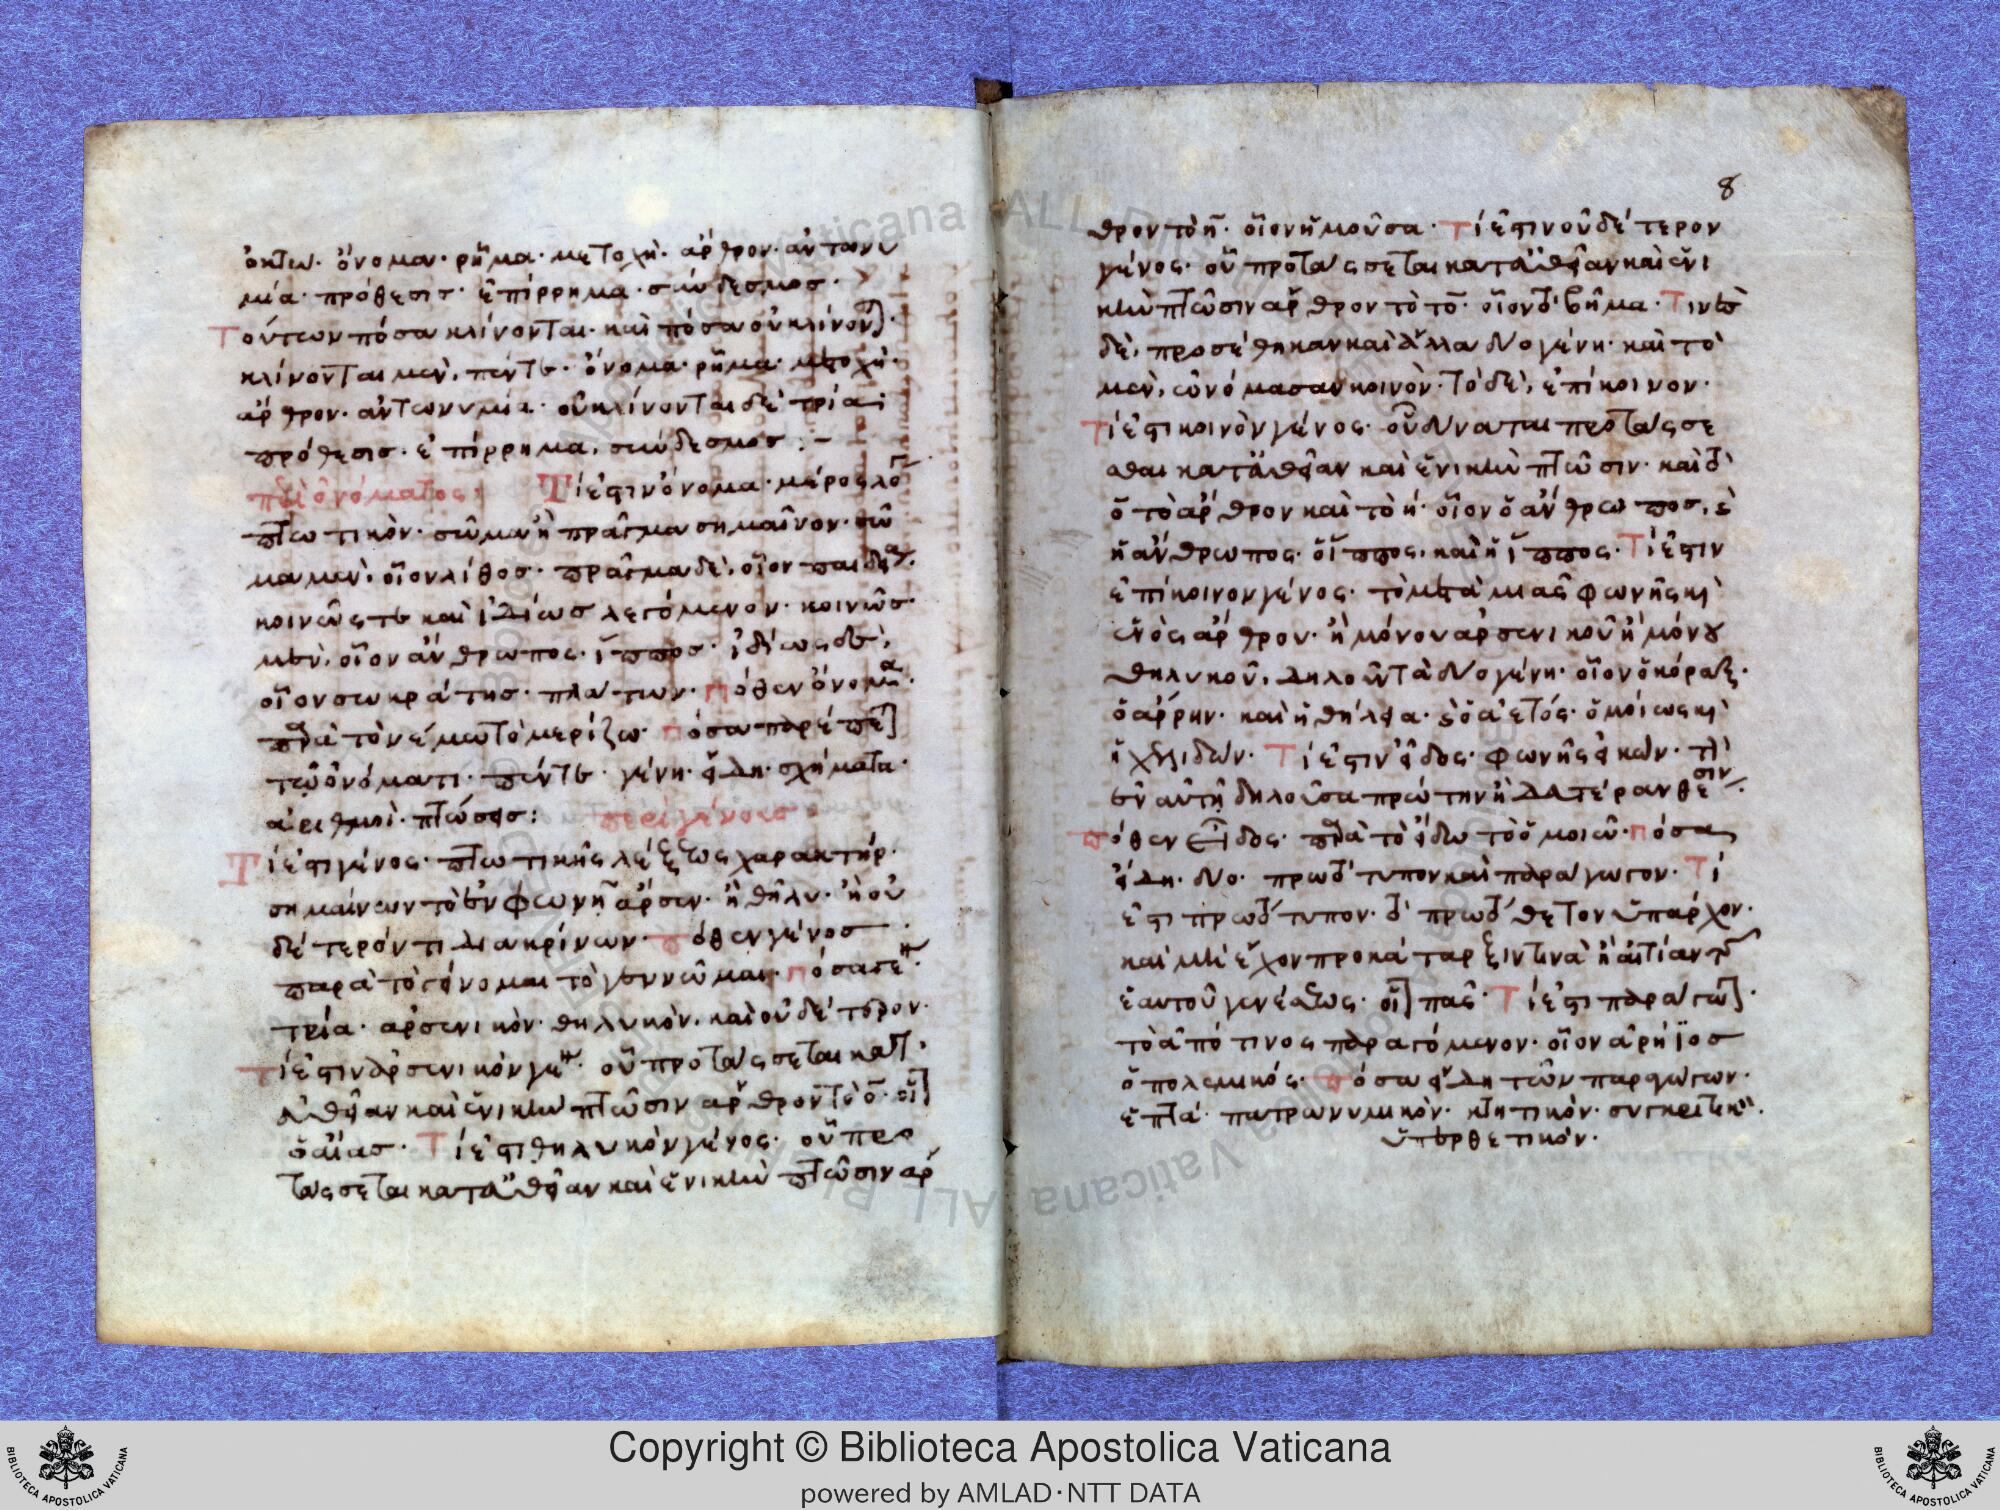 ὀκτω· ὄνομα· ρῆμα· μετοχὴ· ἄρθρον· ἀντωνυ
μία· πρόθεσις· ἐπίρρημα· σύνδεσμος·
Τούτων πόσα κλίνονται· καὶ πόσα οὐ κλίνον)·
κλίνονται μὲν, πέντε· ὄνομα· ρῆμα· μετοχὴ·
ἄρθρον· ἀντωνυμία· οὐ κλίνονται δὲ τρία·
πρόθεσις· ἐπίρρημα, σύνδεσμος :-
περὶ ὀνόματος· Τί ἐστιν ὄνομα· μέρος λό
πτωτικὸν· σῶμα ἢ πρᾶγμα σημαῖνον· σῶ
μα μεν· οἷον λίθος· πρᾶγμα δὲ, οἷον παιδεία·
κοινῶς τε καὶ ἰδίως λεγόμενον· κοινῶς
μὲν, οἷον ἄνθρωπος· ἵππος· ἰδίως δὲ,
οἷον σωκράτης· πλάτων· πόθεν ὄνομα·
παρὰ τὸ νέμω τὸ μερίζω· πόσα παρέπε)
τῶ ὀνόματι· πέντε· γένη· εἴδη· σχήματα·
ἀριθμοὶ· πτώσεις: περὶ γένους
Τί ἐστι γένος· πτωτικῆς λέξεως χαρακτήρ·
σημαίνων τὸ ἐν φωνῆ ἄρσεν· ἢ θῆλυ· ἢ οὐ
δέτερόν τι διακρίνων· πόθεν γένος
παρὰ τὸ γένομαι τὸ γεννῶμαι· πόσα γένη·
τρία· ἀρσενικὸν· θηλυκὸν, καὶ οὐδέτερον·
Τί ἐστιν ἀρσενικὸν γένη· οὗ προτάσσεται κατ
εὐθεῖαν καὶ ἑνικὴν πτῶσιν ἄρθρον τὸ ὁ· οἷ)
ὁ αἴας· Τί ἐστι θηλυκὸν γένος· οὗ προ
τάσσεται κατ' εὐθεῖαν καὶ ἑνικὴν πτῶσιν ἄρ
8
θρον τὸ ἡ· οἷον ἡ μοῦσα· Τί ἐστιν οὐδέτερον
γένος· οὗ προτάσσεται κατ' εὐθεῖαν καὶ ἑνι
κὴν πτῶσιν ἄρθρον τὸ τὸ· οἷον τὸ βῆμα· Τινὲς
δὲ, προσέθηκαν καὶ ἄλλα δύο γένη· καὶ τὸ
μὲν, ὠνόμασαν κοινὸν· τὸ δὲ, ἐπίκοινον·
Τί ἐστι κοινὸν γένος· οὗ δύναται προτάσσε
σθαι κατ' εὐθεῖαν καὶ ἑνικὴν πτῶσιν· καὶ τὸ
ὁ τὸ ἄρθρον καὶ τὸ ἡ· οἷον ὁ ἄνθρωπος, καὶ
ἡ ἄνθρωπος· ὁ ἵππος, καὶ ἡ ἵππος· Τί ἐστιν
ἐπίκοινον γένος· τὸ μετὰ μιᾶς φωνῆς καὶ
ἑνὸς ἄρθρου· ἢ μόνου ἀρσενικοῦ ἢ μόνου
θηλυκοῦ, δηλοῦν τὰ δύο γένη· οἷον ὁ κόραξ·
ὁ ἄρρην· καὶ ἡ θήλεια· καὶ ὁ ἀετός· ὁμοίως καὶ
ἡ χελιδών· Τί ἐστιν εἶδος· φωνῆς εἰκὼν· τὴν
ἐν αὐτῆ δηλοῦσα πρώτην ἢ δευτέραν θέσιν·
πόθεν εἶδος· παρὰ τὸ εἴδω τὸ ὁμοιῶ· πόσα
εἴδη· δύο· πρωτότυπον καὶ παράγωγον· Τί
ἐστι πρωτότυπον· τὸ πρωτόθετον ὑπάρχον·
καὶ μὴ ἔχον προκάταρξίν τινα ἢ αἰτίαν τῆς
ἑαυτοῦ γενέσεως· οἷ) πᾶς· Τί ἐστι παράγω)·
τὸ ἀπό τινος παραγόμενον· οἷον ἀρήϊος
ὁ πολεμικός· πόσα εἴδη τῶν παραγώγων·
ἑπτά· πατρωνυμικὸν· κτητικὸν· συγκριτικὸν·
ὑπερθετικὸν·
Copyright © Biblioteca Apostolica Vaticana
powered by AMLAD·NTT DATA
BIBLIOTECA APOSTOLICA VATICANA
BIBLIOTECA APOSTOLICA VATICANA